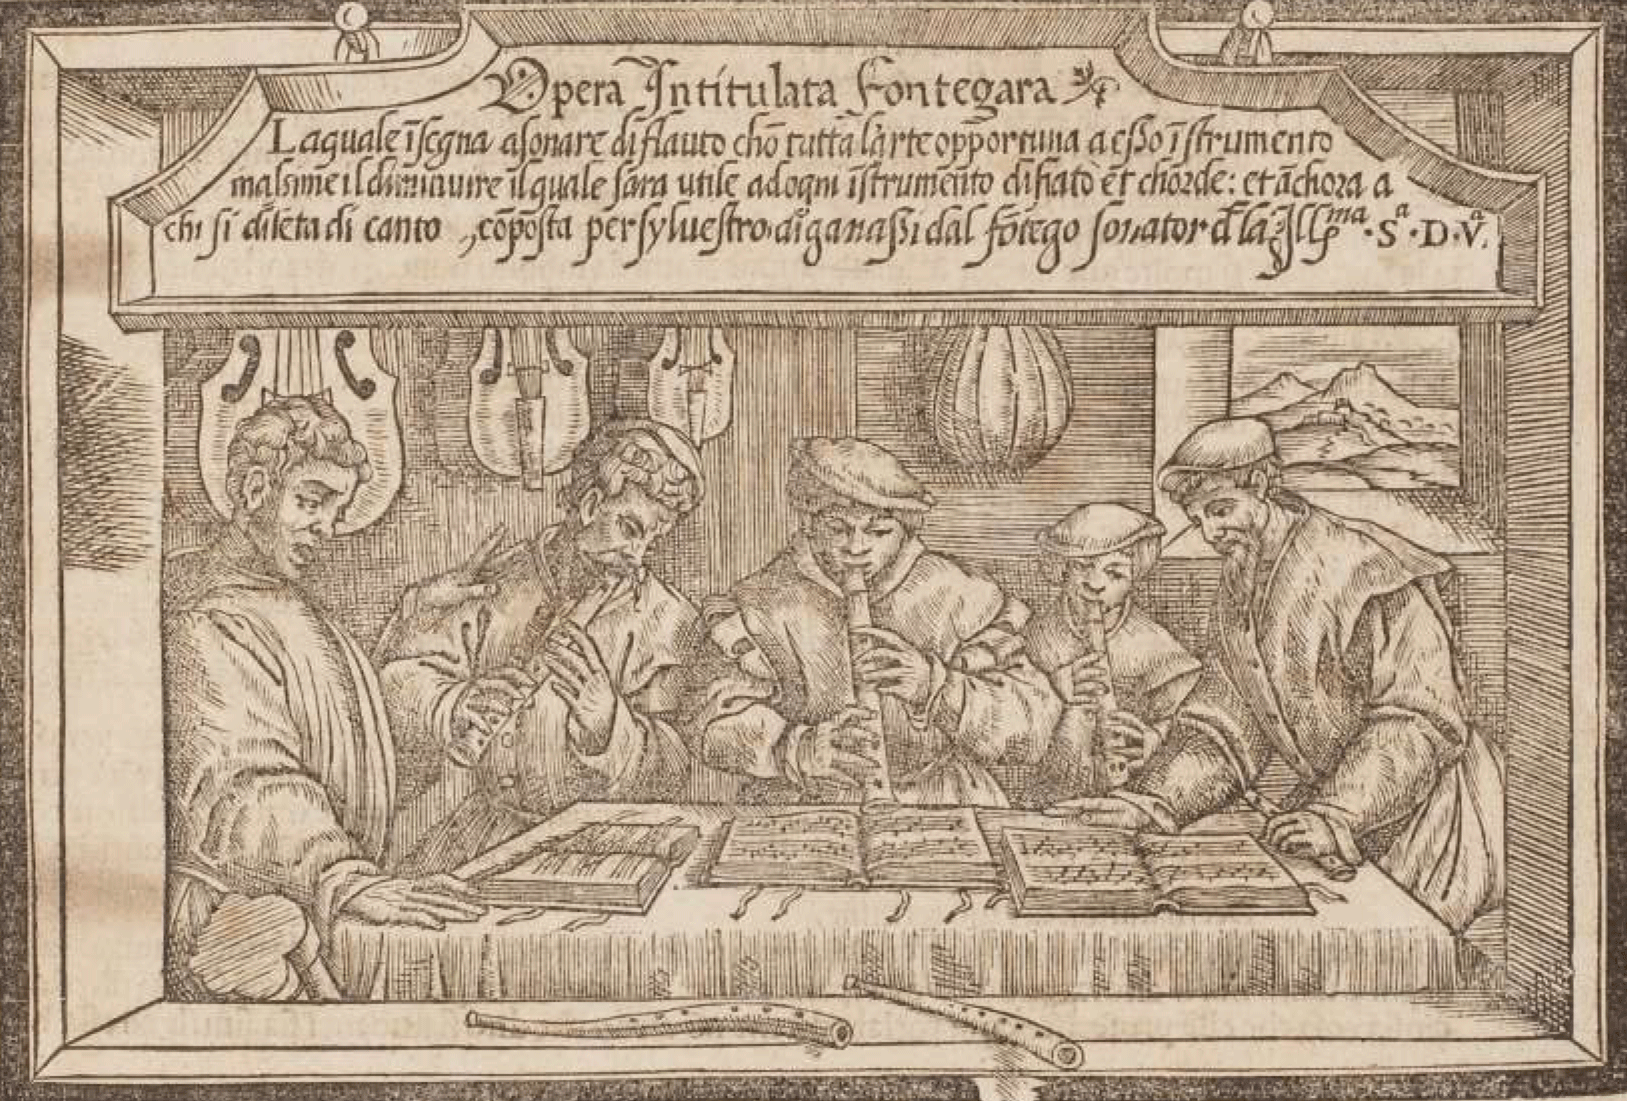 Opera Intitulata Fontegara
Laquale īsegna asonare di flauto chō tutta l'arte opportuna a esso īstrumento
massime il diminuire il quale sara utile ad ogni īstrumento di fiato et chorde: et āchora a
chi si dileta di canto, cōposta per sylvestro di ganassi dal fōtego sonator d̄ la Ill.ma Sa.D.Va.